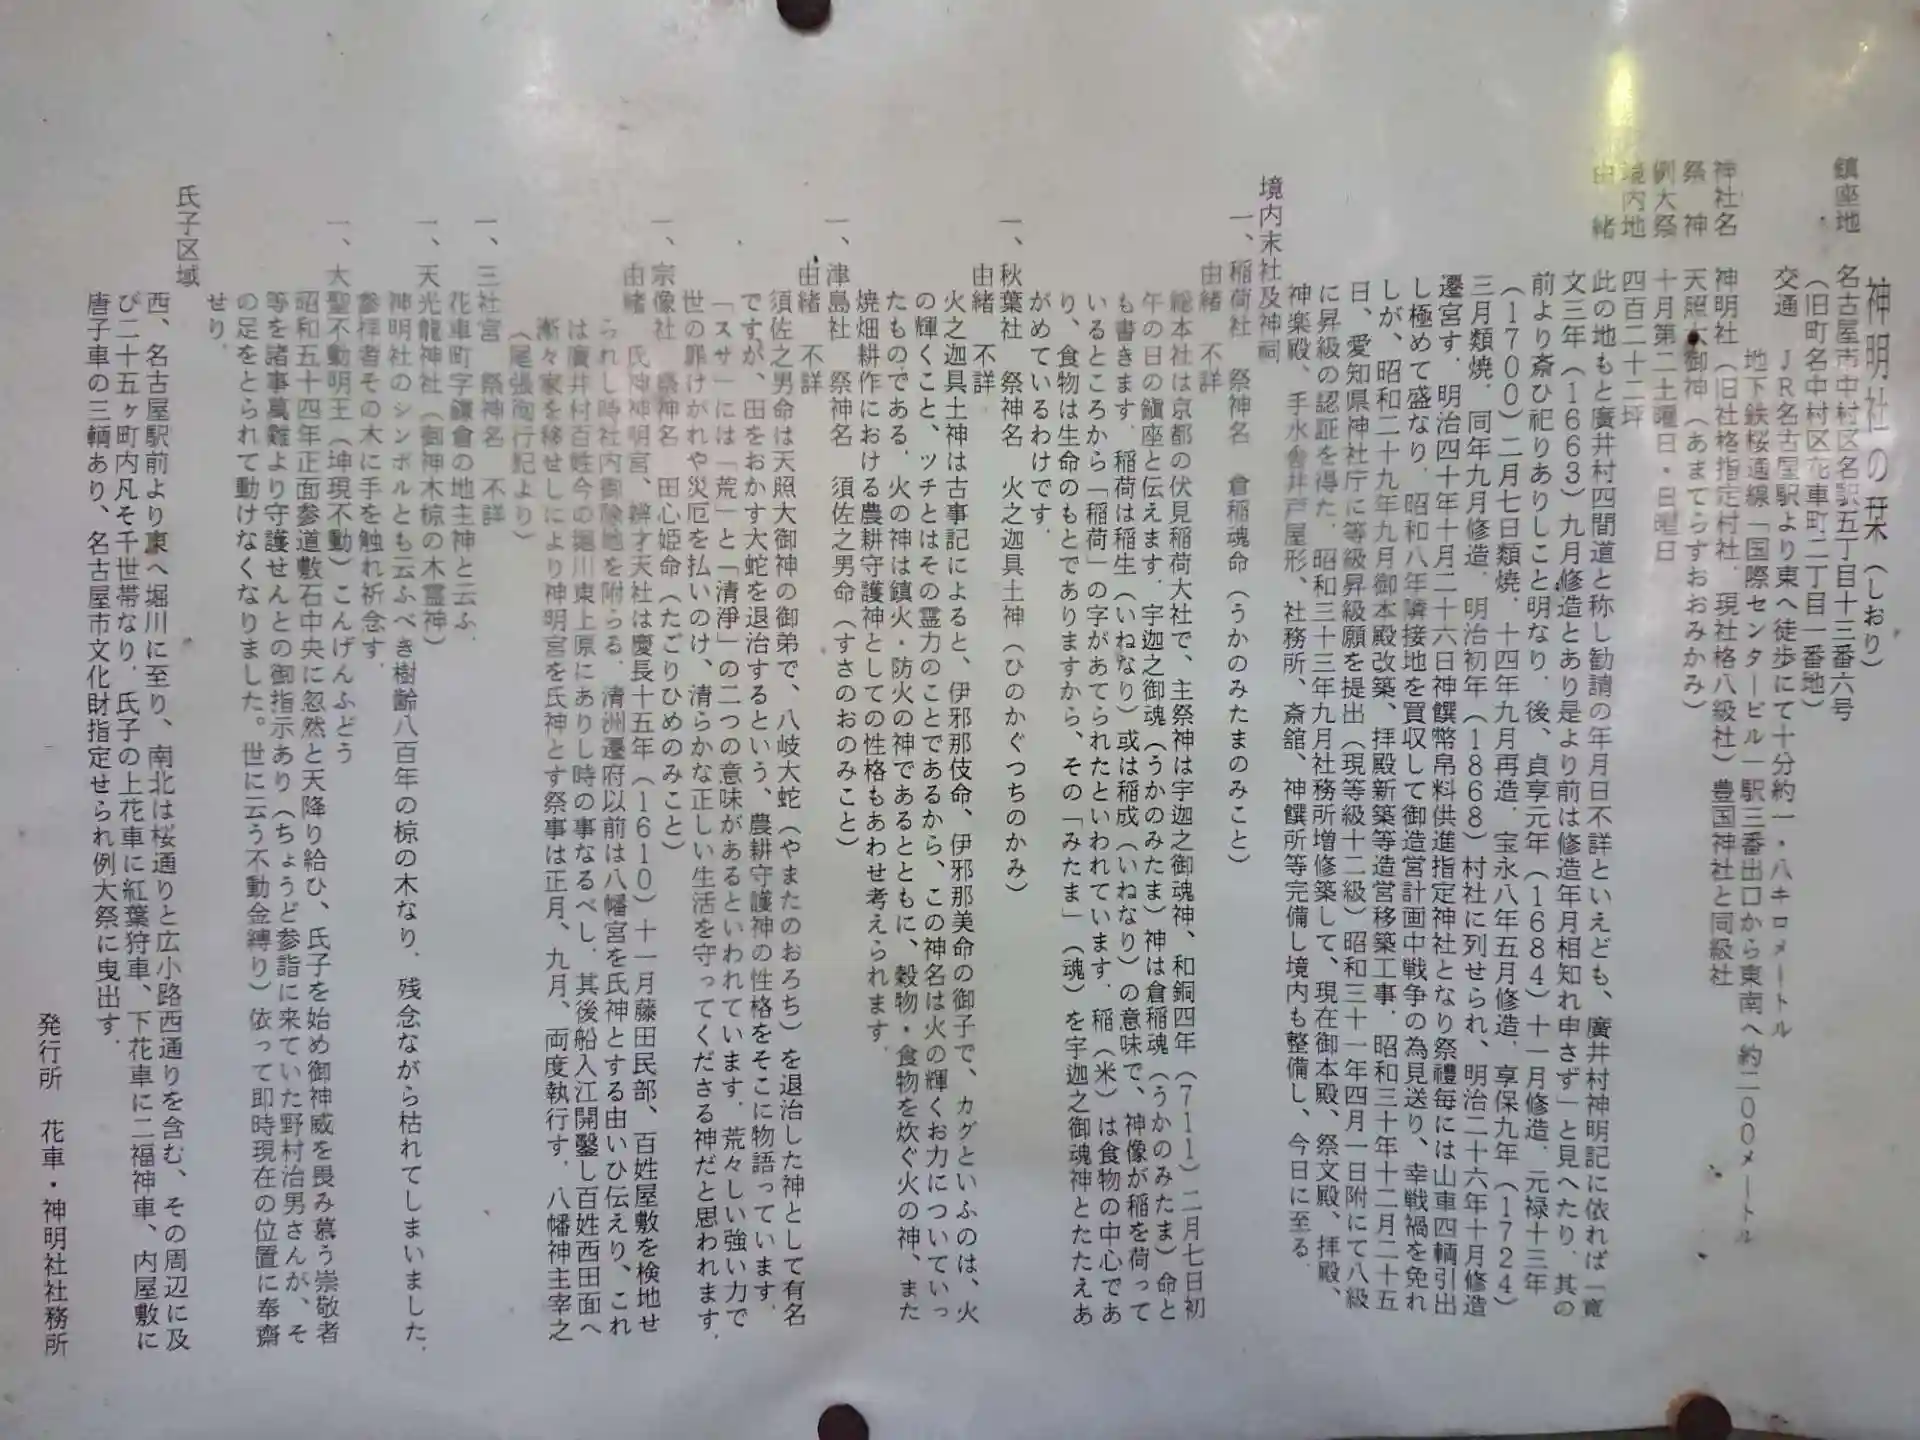 神明社の栞（しおり）
鎮座地　名古屋市中村区名駅五丁目十三番六号
（旧町名中村区花車町二丁目一番地）
交通　ＪＲ名古屋駅より東へ徒歩にて十分約一・八キロメートル
地下鉄桜通線「国際センタービル」駅三番出口から東南へ約二００メートル
神社名　神明社（旧社格指定村社．現社格八級社）豊国神社と同級社
祭　神　天照大御神（あまてらすおおみかみ）
例大祭　十月第二土曜日・日曜日
境内地　四百二十二坪
由　緒　此の地もと廣井村四間道と称し勧請の年月日不詳といえども、廣井村神明記に依れば「寛
文三年（1663）九月修造とあり是より前は修造年月相知れ申さず」と見へたり．其の
前より斎ひ祀りありしこと明なり．後、貞享元年（1684）十一月修造．元禄十三年
（1700）二月七日類焼．十四年九月再造．宝永八年五月修造．享保九年（1724）
三月類焼．同年九月修造．明治初年（1868）村社に列せられ、明治二十六年十月修造
遷宮す．明治四十年十月二十六日神饌幣帛料供進指定神社となり祭禮毎には山車四輌引出
し極めて盛なり．昭和八年隣接地を買収して御造営計画中戦争の為見送り、幸戦禍を免れ
しが、昭和二十九年九月御本殿改築、拝殿新築等造営移築工事．昭和三十年十二月二十五
日、愛知県神社庁に等級昇級願を提出（現等級十二級）昭和三十一年四月一日附にて八級
に昇級の認証を得た．昭和三十三年九月社務所増修築して、現在御本殿、祭文殿、拝殿、
神楽殿、手水舎井戸屋形、社務所、斎舘、神饌所等完備し境内も整備し、今日に至る．
境内末社及神祠
一、稲荷社　祭神名　倉稲魂命（うかのみたまのみこと）
由緒　不詳
総本社は京都の伏見稲荷大社で、主祭神は宇迦之御魂神、和銅四年（711）二月七日初
午の日の鎮座と伝えます．宇迦之御魂（うかのみたま）神は倉稲魂（うかのみたま）命と
も書きます．稲荷は稲生（いねなり）或は稲成（いねなり）の意味で、神像が稲を荷って
いるところから「稲荷」の字があてられたといわれています．稲（米）は食物の中心であ
り、食物は生命のもとでありますから、その「みたま」（魂）を宇迦之御魂神とたたえあ
がめているわけです．
一、秋葉社　祭神名　火之迦具土神（ひのかぐつちのかみ）
由緒　不詳
火之迦具土神は古事記によると、伊邪那伎命、伊邪那美命の御子で、カグといふのは、火
の輝くこと、ツチとはその霊力のことであるから、この神名は火の輝くお力についていっ
たものである．火の神は鎮火・防火の神であるとともに、穀物・食物を炊ぐ火の神、また
焼畑耕作における農耕守護神としての性格もあわせ考えられます．
一、津島社　祭神名　須佐之男命（すさのおのみこと）
由緒　不詳
須佐之男命は天照大御神の御弟で、八岐大蛇（やまたのおろち）を退治した神として有名
ですが、田をおかす大蛇を退治するという、農耕守護神の性格をそこに物語っています．
「スサ」には「荒」と「清淨」の二つの意味があるといわれています．荒々しい強い力で
世の罪けがれや災厄を払いのけ、清らかな正しい生活を守ってくださる神だと思われます．
一、宗像社　祭神名　田心姫命（たごりひめのみこと）
由緒　氏神神明宮、辨才天社は慶長十五年（1610）十一月藤田民部、百姓屋敷を検地せ
られし時社内御除地を附らる．清洲遷府以前は八幡宮を氏神とする由いひ伝えり、これ
は廣井村百姓今の堀川東上原にありし時の事なるべし．其後船入江開鑿し百姓西田面へ
漸々家を移せしにより神明宮を氏神とす祭事は正月、九月、両度執行す．八幡神主宰之
（尾張徇行記より）
一、三社宮　祭神名　不詳
花車町字鎭倉の地主神と云ふ．
一、天光龍神社（御神木椋の木霊神）
神明社のシンボルとも云ふべき樹齢八百年の椋の木なり．残念ながら枯れてしまいました．
参拝者その木に手を触れ祈念す．
一、大聖不動明王（坤現不動）こんげんふどう
昭和五十四年正面参道敷石中央に忽然と天降り給ひ、氏子を始め御神威を畏み慕う崇敬者
等を諸事萬難より守護せんとの御指示あり（ちょうど参詣に来ていた野村治男さんが、そ
の足をとられて動けなくなりました。世に云う不動金縛り）依って即時現在の位置に奉齋
せり．
氏子区域
西、名古屋駅前より東へ堀川に至り、南北は桜通りと広小路西通りを含む、その周辺に及
び二十五ヶ町内凡そ千世帯なり．氏子の上花車に紅葉狩車、下花車に二福神車、内屋敷に
唐子車の三輌あり、名古屋市文化財指定せられ例大祭に曳出す．
発行所　花車・神明社社務所